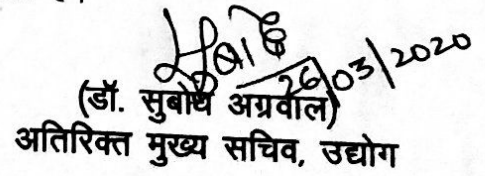 सुबोध
26/03/2020
(डॉ. सुबोध अग्रवाल)
अतिरिक्त मुख्य सचिव, उद्योग